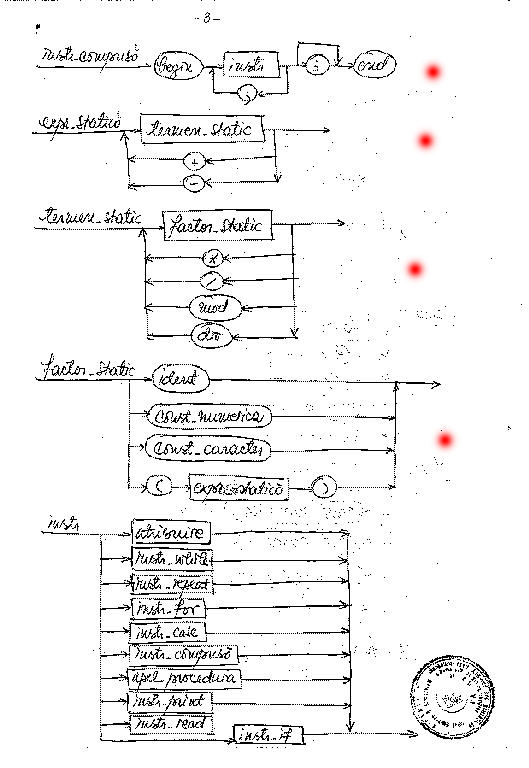 - 3 -
instr-compusă begin instr ; end
;
expr-statică termen-static
+
-
termen-static factor-static
*
/
mod
div
factor-static ident
const-numerica
const-caracter
( expr-statică )
instr atribuire
instr-while
instr-repeat
instr-for
instr-case
instr-compusă
apel-procedura
instr-print
instr-read
instr-if